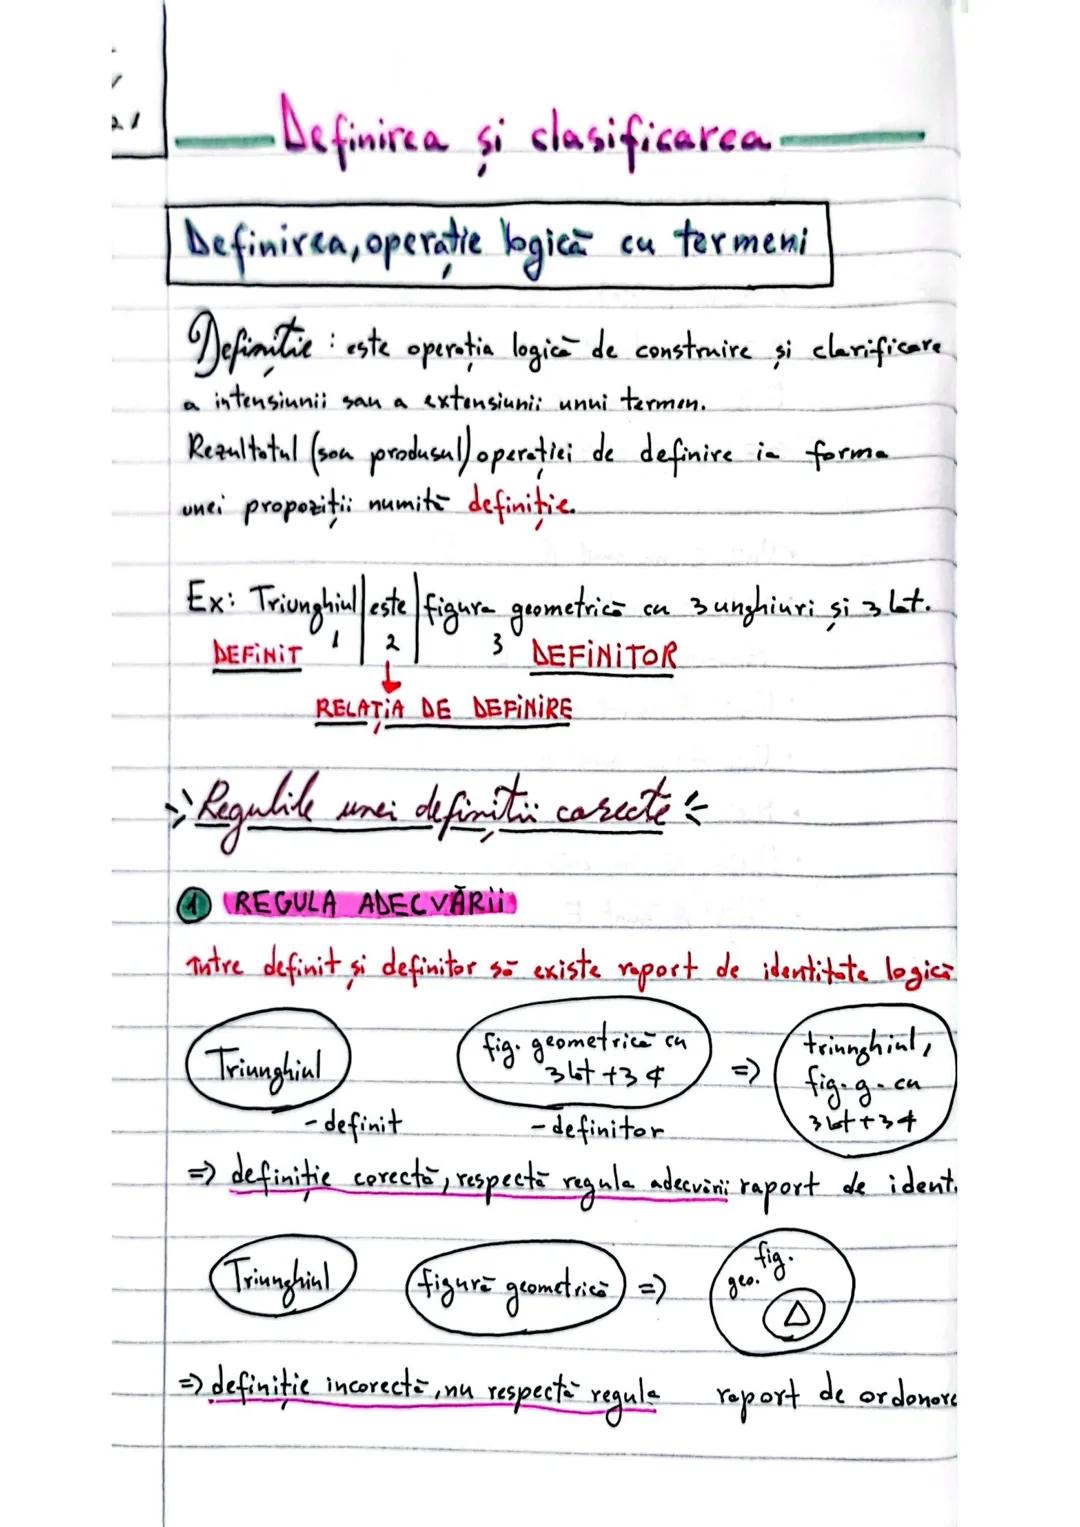 21
Definirea și clasificarea
Definirea, operație logică cu termeni
Definiție : este operația logică de construire și clarificare
a intensiunii sau a extensiunii unui termen.
Rezultatul (sau produsul) operației de definire ia forma
unei propoziții numită definiție.
Ex: Triunghiul | este | figura geometrică cu 3 unghiuri și 3 lat.
1 2 3
DEFINIT DEFINITOR
RELAȚIA DE DEFINIRE
Regulile unei definiții corecte
1 REGULA ADECVĂRII
Între definit și definitor să existe raport de identitate logică
Triunghiul
fig. geometrică cu
3 lat + 3 ∢
=>
triunghiul,
fig. g. cu
3 lat + 3 ∢
- definit
- definitor
=> definiție corectă, respectă regula adecvării raport de ident.
Triunghiul
figură geometrică =>
fig.
geo.
Δ
=> definiție incorectă, nu respectă regula raport de ordonare